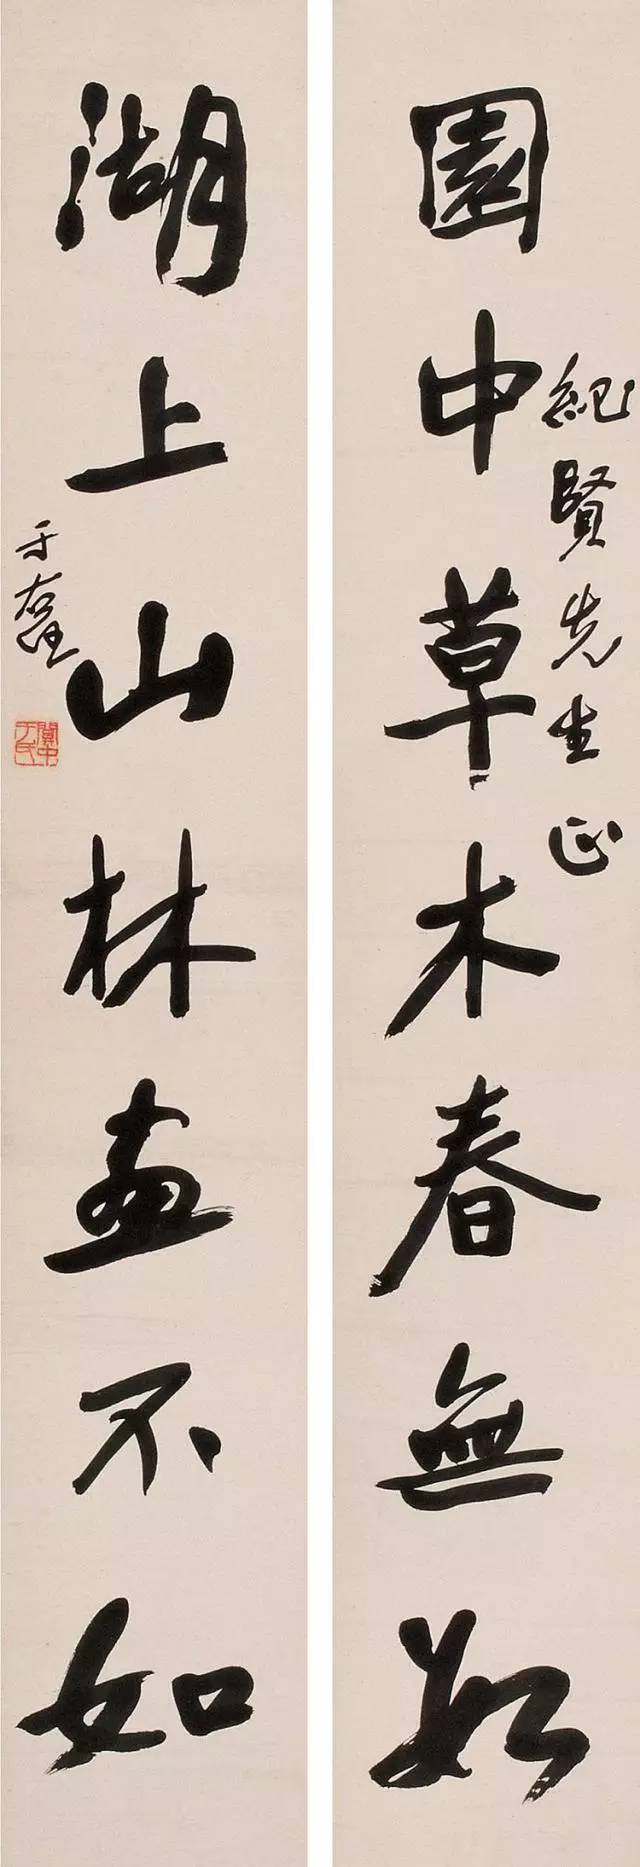 園中草木春無數
紀賢先生正
湖上山林畫不如
于右任
關中于氏